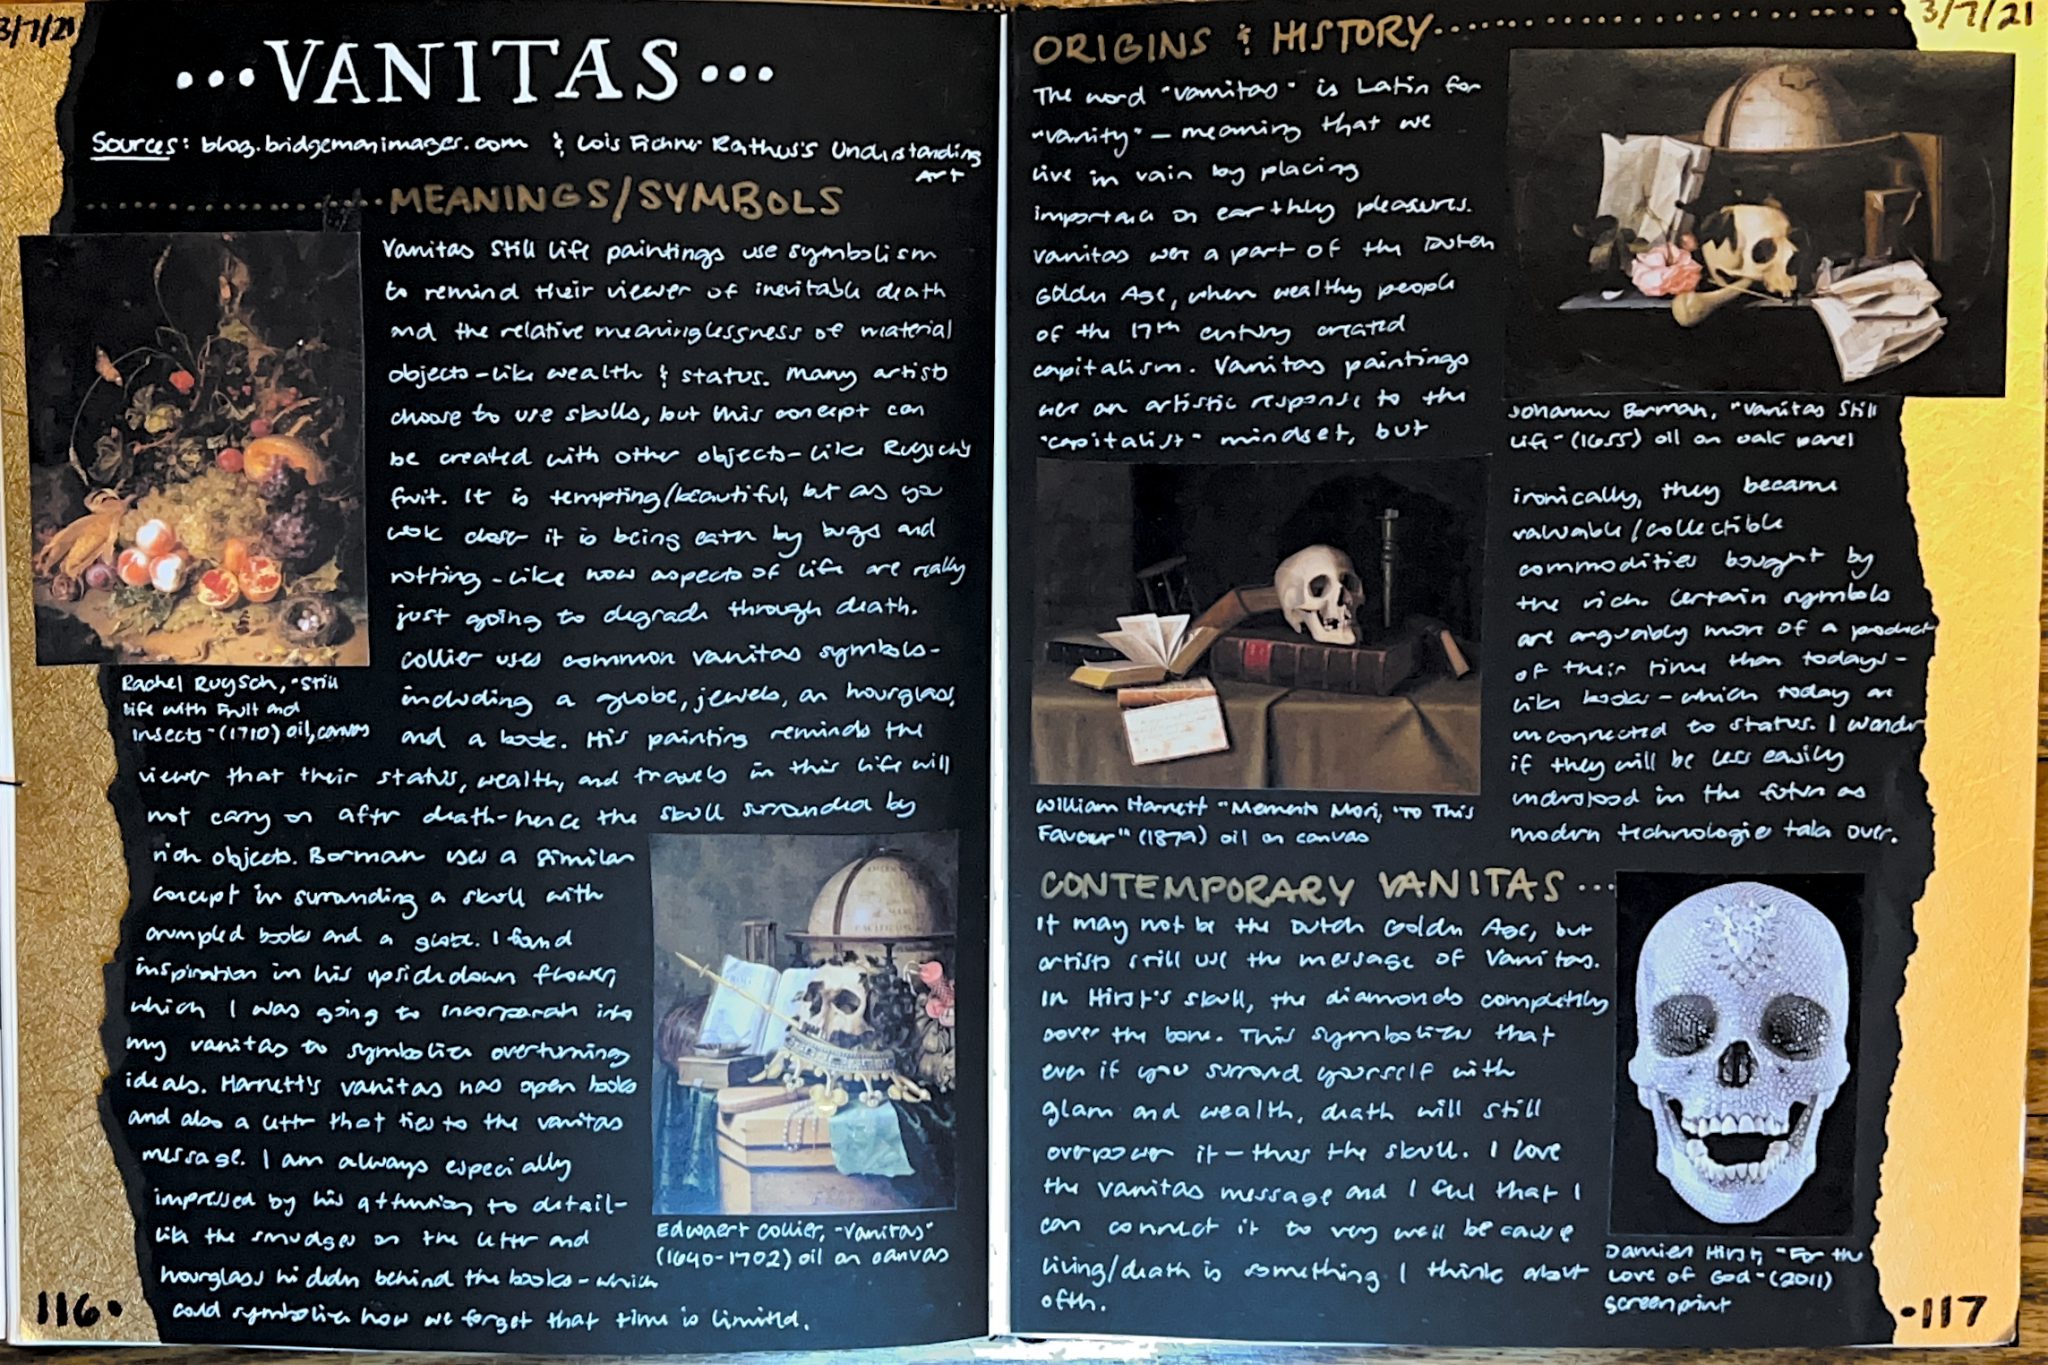 3/7/21
•••VANITAS•••
Sources: blog.bridgemanimages.com & Lois Fichner Rathus's Understanding
Art
MEANINGS/SYMBOLS
Vanitas still life paintings use symbolism
to remind their viewer of inevitable death
and the relative meaninglessness of material
objects-like wealth & status. Many artists
choose to use skulls, but this concept can
be created with other objects-like Ruysch's
fruit. It is tempting/beautiful, but as you
look closer it is being eaten by bugs and
rotting-like how aspects of life are really
just going to degrade through death.
Collier uses common vanitas symbols-
including a globe, jewels, an hourglass,
and a book. His painting reminds the
viewer that their status, wealth, and travels in this life will
not carry on after death-hence the skull surrounded by
rich objects. Borman uses a similar
concept in surrounding a skull with
crumpled books and a globe. I found
inspiration in his upside down flower,
which I was going to incorporate into
my vanitas to symbolize overturning
ideals. Harnett's vanitas has open books
and also a letter that ties to the vanitas
message. I am always especially
impressed by his attention to detail-
like the smudges on the letter and
hourglass hidden behind the books-which
could symbolize how we forget that time is limited.
Rachel Ruysch, "Still
life with Fruit and
insects" (1710) oil, canvas
Edwaert Collier, "Vanitas"
(1640-1702) oil on canvas
116•
3/7/21
ORIGINS & HISTORY
The word "vanitas" is Latin for
"vanity" — meaning that we
live in vain by placing
importance on earthly pleasures.
Vanitas were a part of the Dutch
Golden Age, when wealthy people
of the 17th century created
capitalism. Vanitas paintings
were an artistic response to the
"capitalist" mindset, but
Johannes Borman, "Vanitas Still
Life" (1655) oil on oak panel
ironically, they became
valuable/collectible
commodities bought by
the rich. Certain symbols
are arguably more of a product
of their time than todays-
like books-which today are
unconnected to status. I wonder
if they will be less easily
understood in the future as
modern technologie take over.
William Harnett "Memento Mori, 'To This
Favour'" (1879) oil on canvas
CONTEMPORARY VANITAS...
It may not be the Dutch Golden Age, but
artists still use the message of Vanitas.
In Hirst's skull, the diamonds completely
cover the bone. This symbolizes that
even if you surround yourself with
glam and wealth, death will still
overpower it — thus the skull. I love
the vanitas message and I feel that I
can connect it to very well because
living/death is something I think about
often.
Damien Hirst, "For the
Love of God" (2011)
screenprint
•117